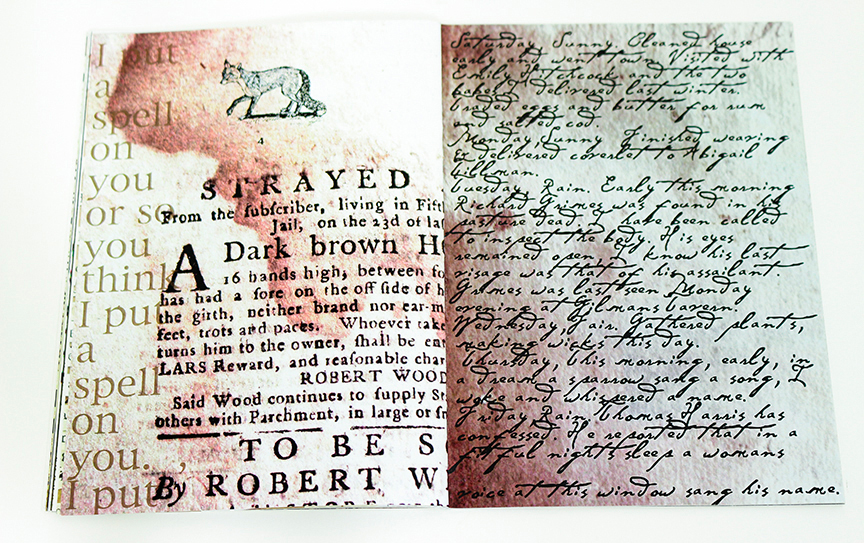 I put
a
spell
on
you
or so
you
think
I put
a
spell
on
you. ,
I put
4
STRAYED
From the ſubſcriber, living in Fift
Jail, on the 23d of laſ
A Dark brown H
16 hands high, between fo
has had a ſore on the off ſide of h
the girth, neither brand nor ear-m
feet, trots and paces. Whoever take
turns him to the owner, ſhall be en
LARS Reward, and reaſonable char
ROBERT WOOD
Said Wood continues to ſupply St
others with Parchment, in large or ſm
TO BE S
By ROBERT W
Saturday, Sunny. Cleaned house
early and went town. Visited with
Emily Hitchcock and the two
babes I delivered last winter.
Traded eggs and butter for rum
and salted cod.
Monday, Sunny Finished weaving
& delivered coverlet to Abigail
Tuesday, Rain. Early this morning
Richard Grimes was found in his
pasture dead. I have been called
to inspect the body. His eyes
remained open, I know his last
visage was that of his assailant
Grimes was last seen Monday
evening at Gilmans tavern.
Wednesday, Fair. Gathered plants,
making wicks this day.
Thursday, this morning, early, in
a dream a sparrow sang a song, I
woke and whispered a name.
Friday Rain Thomas Harris has
confessed. He reported that in a
fitful nights sleep a womans
voice at this window sang his name.